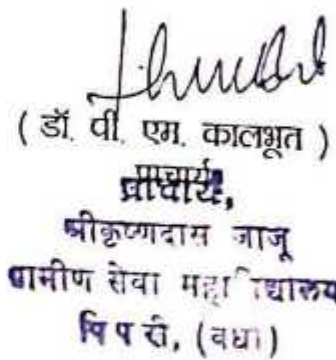 ( डॉ. वी. एम. कालभूत )
प्राचार्य,
श्रीकृष्णदास जाजू
ग्रामीण सेवा महाविद्यालय
पिपरी, (वर्धा)